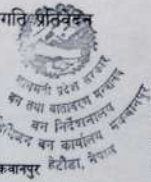 गति प्रतिवेदन
बागमती प्रदेश सरकार
वन तथा वातावरण मन्त्रालय
वन निर्देशनालय
डिभिजन वन कार्यालय मकवानपुर
हेटौंडा, नेपाल
कवानपुर